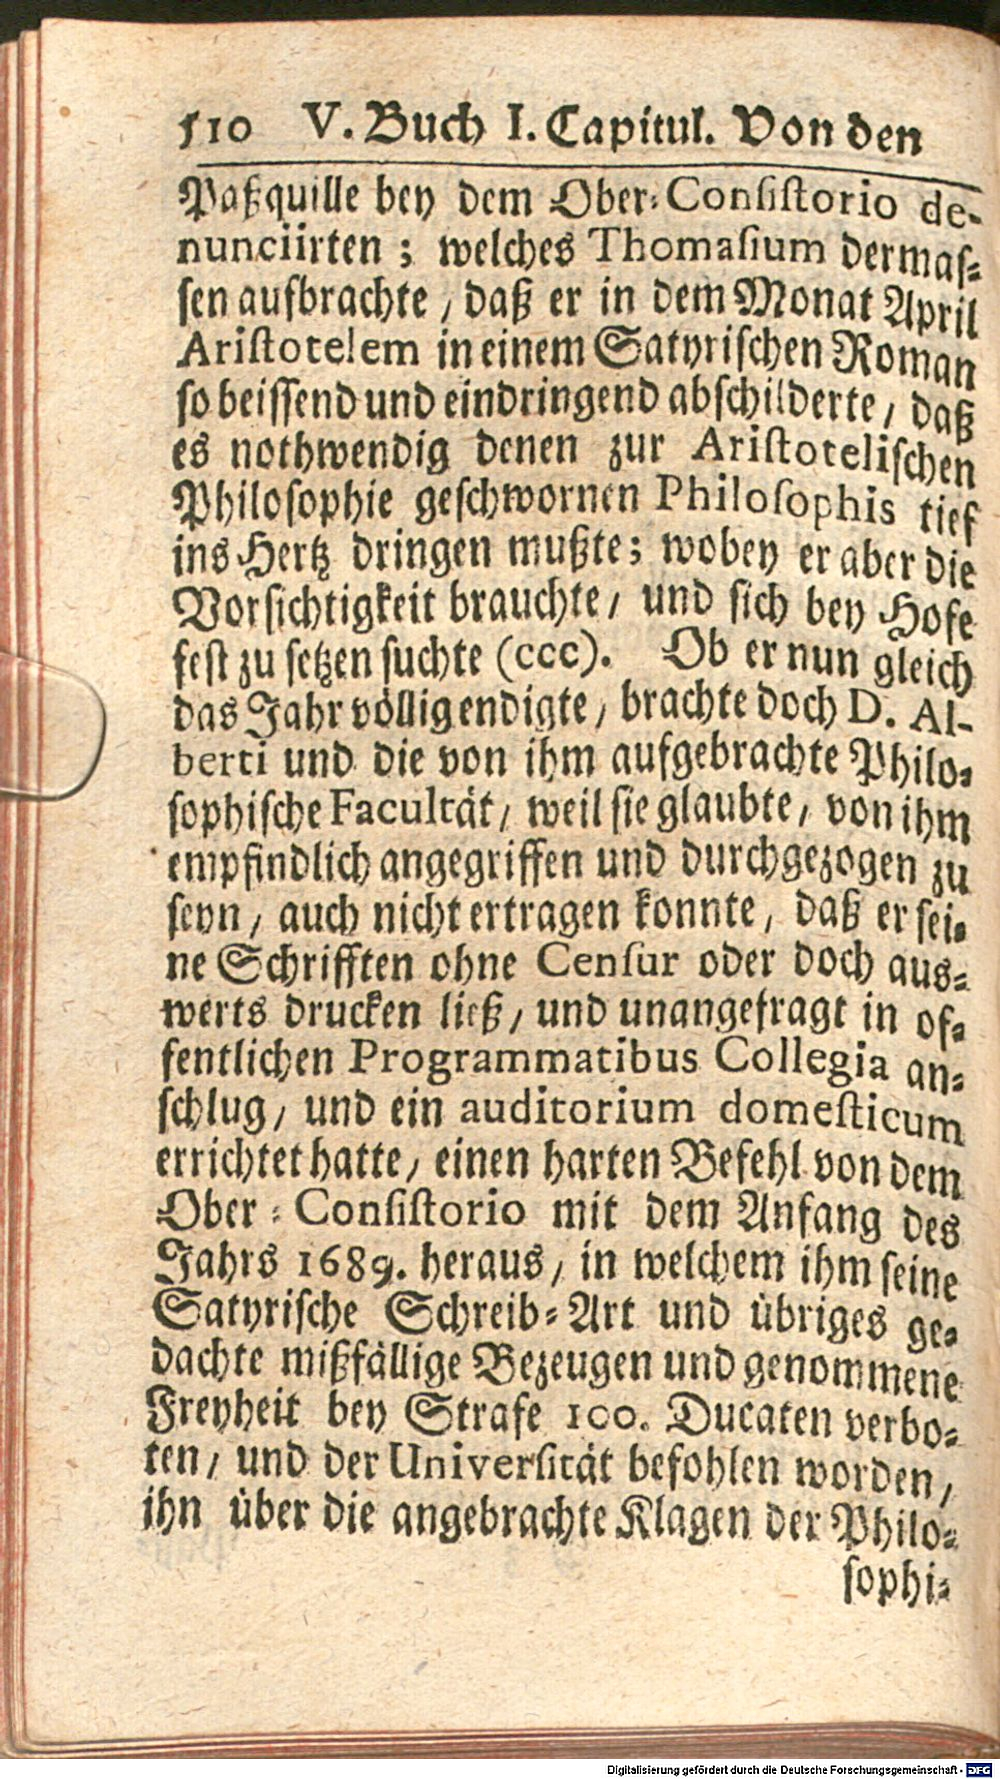 510 V. Buch I. Capitul. Von den
Paßquille bey dem Ober-Consistorio de-
nunciirten; welches Thomasium dermas-
sen aufbrachte, daß er in dem Monat April
Aristotelem in einem Satyrischen Roman
so beissend und eindringend abschilderte, daß
es nothwendig denen zur Aristotelischen
Philosophie geschwornen Philosophis tief
ins Hertz dringen mußte; wobey er aber die
Vorsichtigkeit brauchte, und sich bey Hofe
fest zu setzen suchte (ccc). Ob er nun gleich
das Jahr völlig endigte, brachte doch D. Al-
berti und die von ihm aufgebrachte Philo-
sophische Facultät, weil sie glaubte, von ihm
empfindlich angegriffen und durchgezogen zu
seyn, auch nicht ertragen konnte, daß er sei-
ne Schrifften ohne Censur oder doch aus-
werts drucken ließ, und unangefragt in of-
fentlichen Programmatibus Collegia an-
schlug, und ein auditorium domesticum
errichtet hatte, einen harten Befehl von dem
Ober-Consistorio mit dem Anfang des
Jahrs 1689. heraus, in welchem ihm seine
Satyrische Schreib-Art und übriges ge-
dachte mißfällige Bezeugen und genommene
Freyheit bey Strafe 100. Ducaten verbo-
ten, und der Universität befohlen worden,
ihn über die angebrachte Klagen der Philo-
sophi-
Digitalisierung gefördert durch die Deutsche Forschungsgemeinschaft - DFG